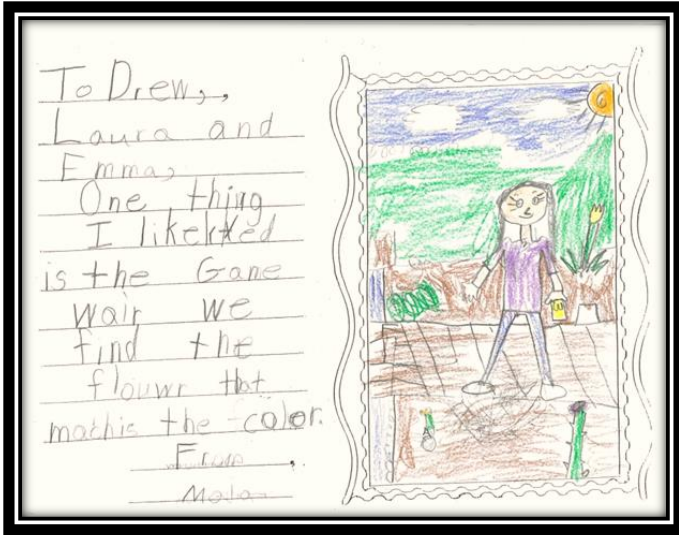 To Drew,,
Laura and
Emma,
One thing
I likekted
is the Game
wair we
find the
flouwr that
mathis the color.
From,
Mala